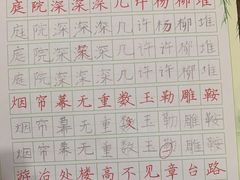 庭院深深几许杨柳堆
庭院深深几许杨柳堆
庭院深深几许杨柳堆
庭院深深几许杨柳堆
烟帘幕无重数玉勒雕鞍
烟帘幕无重数玉勒雕鞍
烟帘幕无重数玉勒雕鞍
烟帘幕无重数玉勒雕鞍
游冶处楼高不见章台路